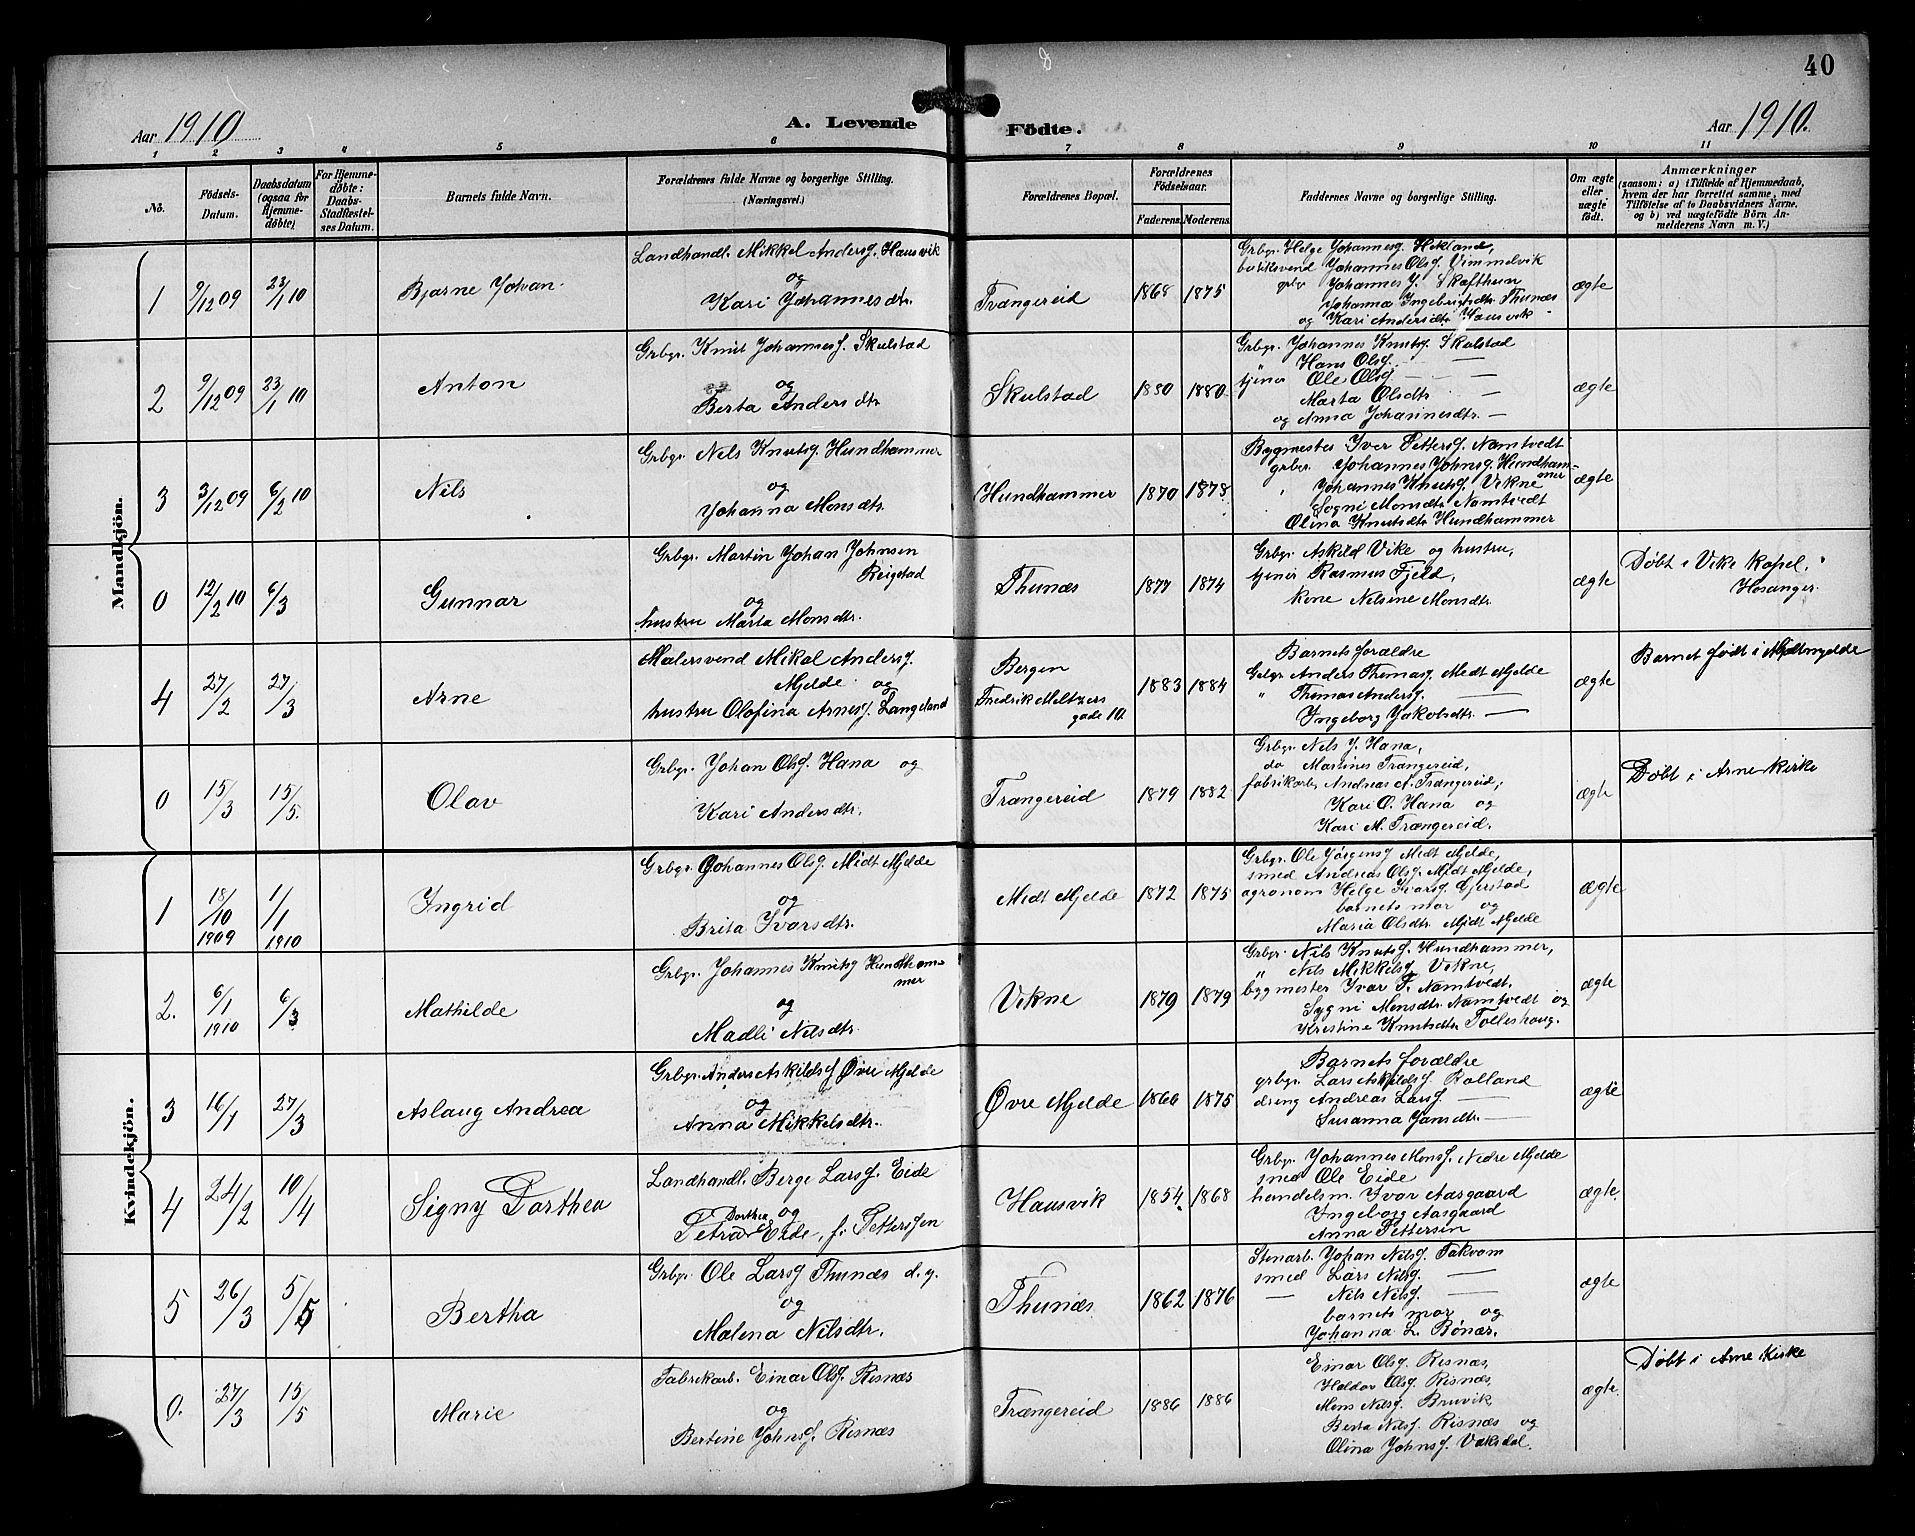 40
Aar 1910
A. Levende
Födte.
Aar 1910.
1 2 3 4 5 6 7 8 9 10 11
No.
Födsels-
Datum.
Daabsdatum
(ogsaa for
Hjemme-
døbte)
For Hjemme-
døbte:
Daabs-
Stadfæstel-
ses Datum.
Barnets fulde Navn.
Forældrenes fulde Navne og borgerlige Stilling.
(Næringsvei.)
Forældrenes Bopæl.
Forældrenes
Födselsaar.
Faderens. Moderens.
Faddernes Navne og borgerlige Stilling.
Om ægte
eller
uægte
födt.
Anmærkninger
(saasom: a) i Tilfælde af Hjemmedaab,
hvem der har forrettet samme, med
Tilföielse af to Daabsvidners Navne,
og b) ved uægtefödte Börn An-
melderens Navn m. V.)
Mandkjön.
1 9/12 09 23/1 10 Bjarne Johan.
Landhandl. Mikkel Andersf. Hausvik
og
Kari Johannesdtr.
Trængereid 1868 1875
Grbgr. Helge Johannesf. Hikland,
butiksvend Johannes Olsf. Vimmelvik
grbgr Johannes J. Skafthun
Johanna Ingebrigtsdtr. Thunæs
og Kari Andersdtr. Hausvik
ægte
2 9/12 09 23/1 10 Anton
Grbgr. Knut Johannesf. Skulstad
og
Berta Andersdtr.
Skulstad 1880 1880
Grbgr. Johannes Knutsf. Skulstad
" Hans Olsf. —
tjener Ole Olsf. —
Marta Olsdtr —
og Anna Johannesdtr. —
ægte
3 3/12 09 6/2 10 Nils
Grbgr. Nils Knutsf. Hundhammer
og
Johanna Monsdtr.
Hundhammer 1870 1878
Bygmester Iver Pettersf. Namtvedt
grbgr. Johannes Johnsf. Hundham-
mer
" Johannes Knutsf. Vikne
Sogni Monsdtr Namtvedt
Olina Knutsdtr Hundhammer
ægte
0 12/2 10 6/3 Gunnar
Grbgr. Martin Johan Johnsen
Reigstad
og
hustru Marta Monsdtr.
Thunæs 1877 1874
Grbgr. Askild Vike og hustru,
tjener Rasmus Fjeld,
kone Nilsine Monsdtr.
ægte
Døbt i Vike kapel,
Hosanger.
4 27/2 27/3 Arne
Malersvend Mikal Andersf.
Mjelde og
hustru Olofina Arnesf. Langeland
Bergen
Fredrik Meltzers
gade 10.
1883 1884
Barnets forældre
Grbgr Anders Thomasf. Medt Mjelde
" Thomas Andersf. —
Ingeborg Jakobsdtr. —
ægte
Barnet født i Midtmjelde
0 15/3 15/5. Olav
Grbgr. Johan Olsf. Hana og
Kari Andersdtr.
Trængereid 1879 1882
Grbgr. Nils J. Hana,
do Martines Trængereid,
fabrikarb. Andreas A. Trængereid,
Kari O. Hana og
Kari M. Trængereid.
ægte
Døbt i Arne kirke
Kvindekjön.
1 18/10 1909 1/1 1910 Ingrid
Grbgr. Johannes Olsf. Midt Mjelde
og
Brita Ivarsdtr.
Midt Mjelde 1872 1875
Grbgr. Ole Jørgensf Midt Mjelde,
smed Andreas Olsf. Midt Mjelde,
agronom Helge Ivarsf. Gjerstad
barnets mor og
Maria Olsdtr. Midt Mjelde
ægte
2. 6/1 1910 6/3 Mathilde
Grbgr. Johannes Knutsf Hundham-
mer
og
Madli Nilsdtr.
Vikne 1879 1879
Grbgr. Nils Knutsf. Hundhammer,
" Nils Mikkelsf Vikne,
bygmester Ivar P. Namtvedt.
Sygni Monsdtr. Namtvedt og
Kristine Knutsdtr Tolleshaug.
ægte
3 16/1 27/3 Aslaug Andrea
Grbgr. Anders Askildsf Øvre Mjelde
og
Anna Mikkelsdtr.
Øvre Mjelde 1860 1875
Barnets forældre
grbgr. Lars Askildsf. Rolland
dreng Andreas Larsf —
Susanna Jansdtr. —
ægte
4 24/2 10/4 Signy Dorthea
Landhandl. Berge Larsf. Eide
og
Petra Dorthea Eide, f. Pettersen
Hausvik 1854 1868
Grbgr. Johannes Monsf. Nedre Mjelde
smed Ole Eide
handelsm. Ivar Aasgaard
Ingeborg Aasgaard
Anna Pettersen
ægte
5 26/3 5/5 Bertha
Grbgr. Ole Larsf Thunæs d.y.
og
Malena Nilsdtr.
Thunæs 1862 1876
Stenarb. Johan Nilsf. Takvam
smed Lars Nilsf. —
— Nils Nilsf. —
barnets mor og
Johanna L. Bønæs.
ægte
0. 27/3 15/5 Marie
Fabrikarb. Einar Olsf. Risnæs
og
Bertine Johnsf. Risnæs
Trængereid 1886 1886
Einar Olsf. Risnæs,
Haldor Olsf. Risnæs,
Mons Nilsf. Bruvik
Berta Nilsf. Risnæs og
Olina Johnsf. Vaksdal.
ægte
Døbt i Arne kirke